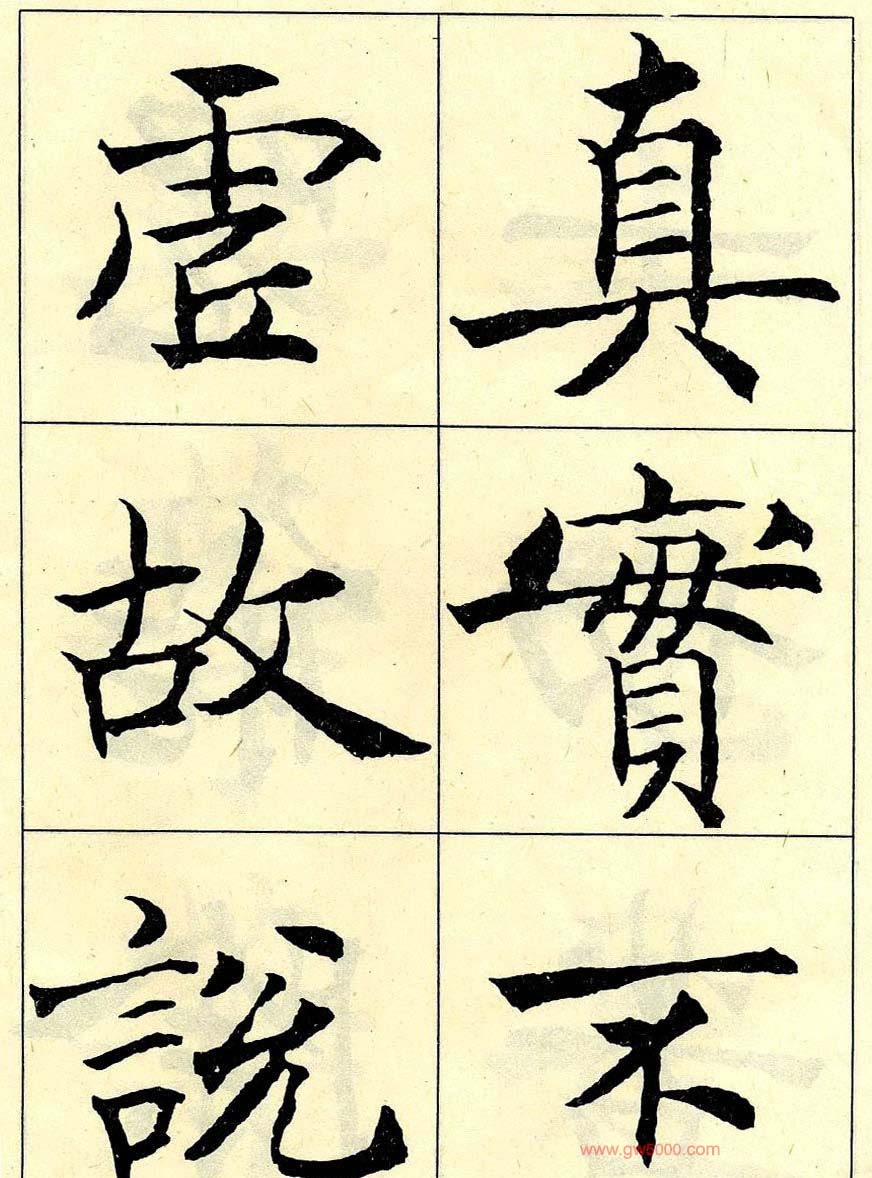 真實不
虛故說
www.gw5000.com